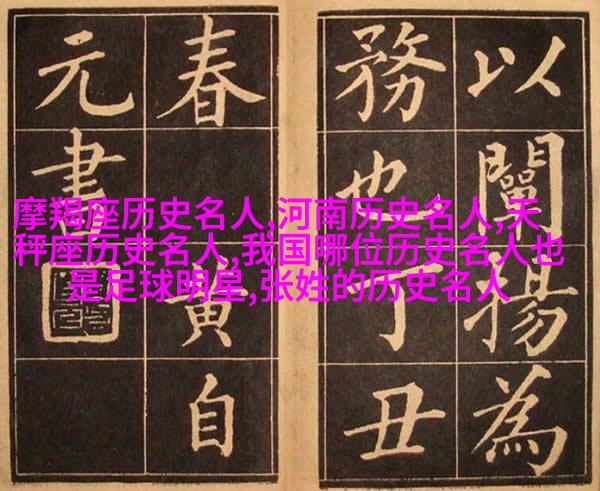 以闡揚為
務也丁丑
春黄自
元書
摩羯座历史名人,河南历史名人,天
秤座历史名人,我国哪位历史名人也
是足球明星,张姓的历史名人